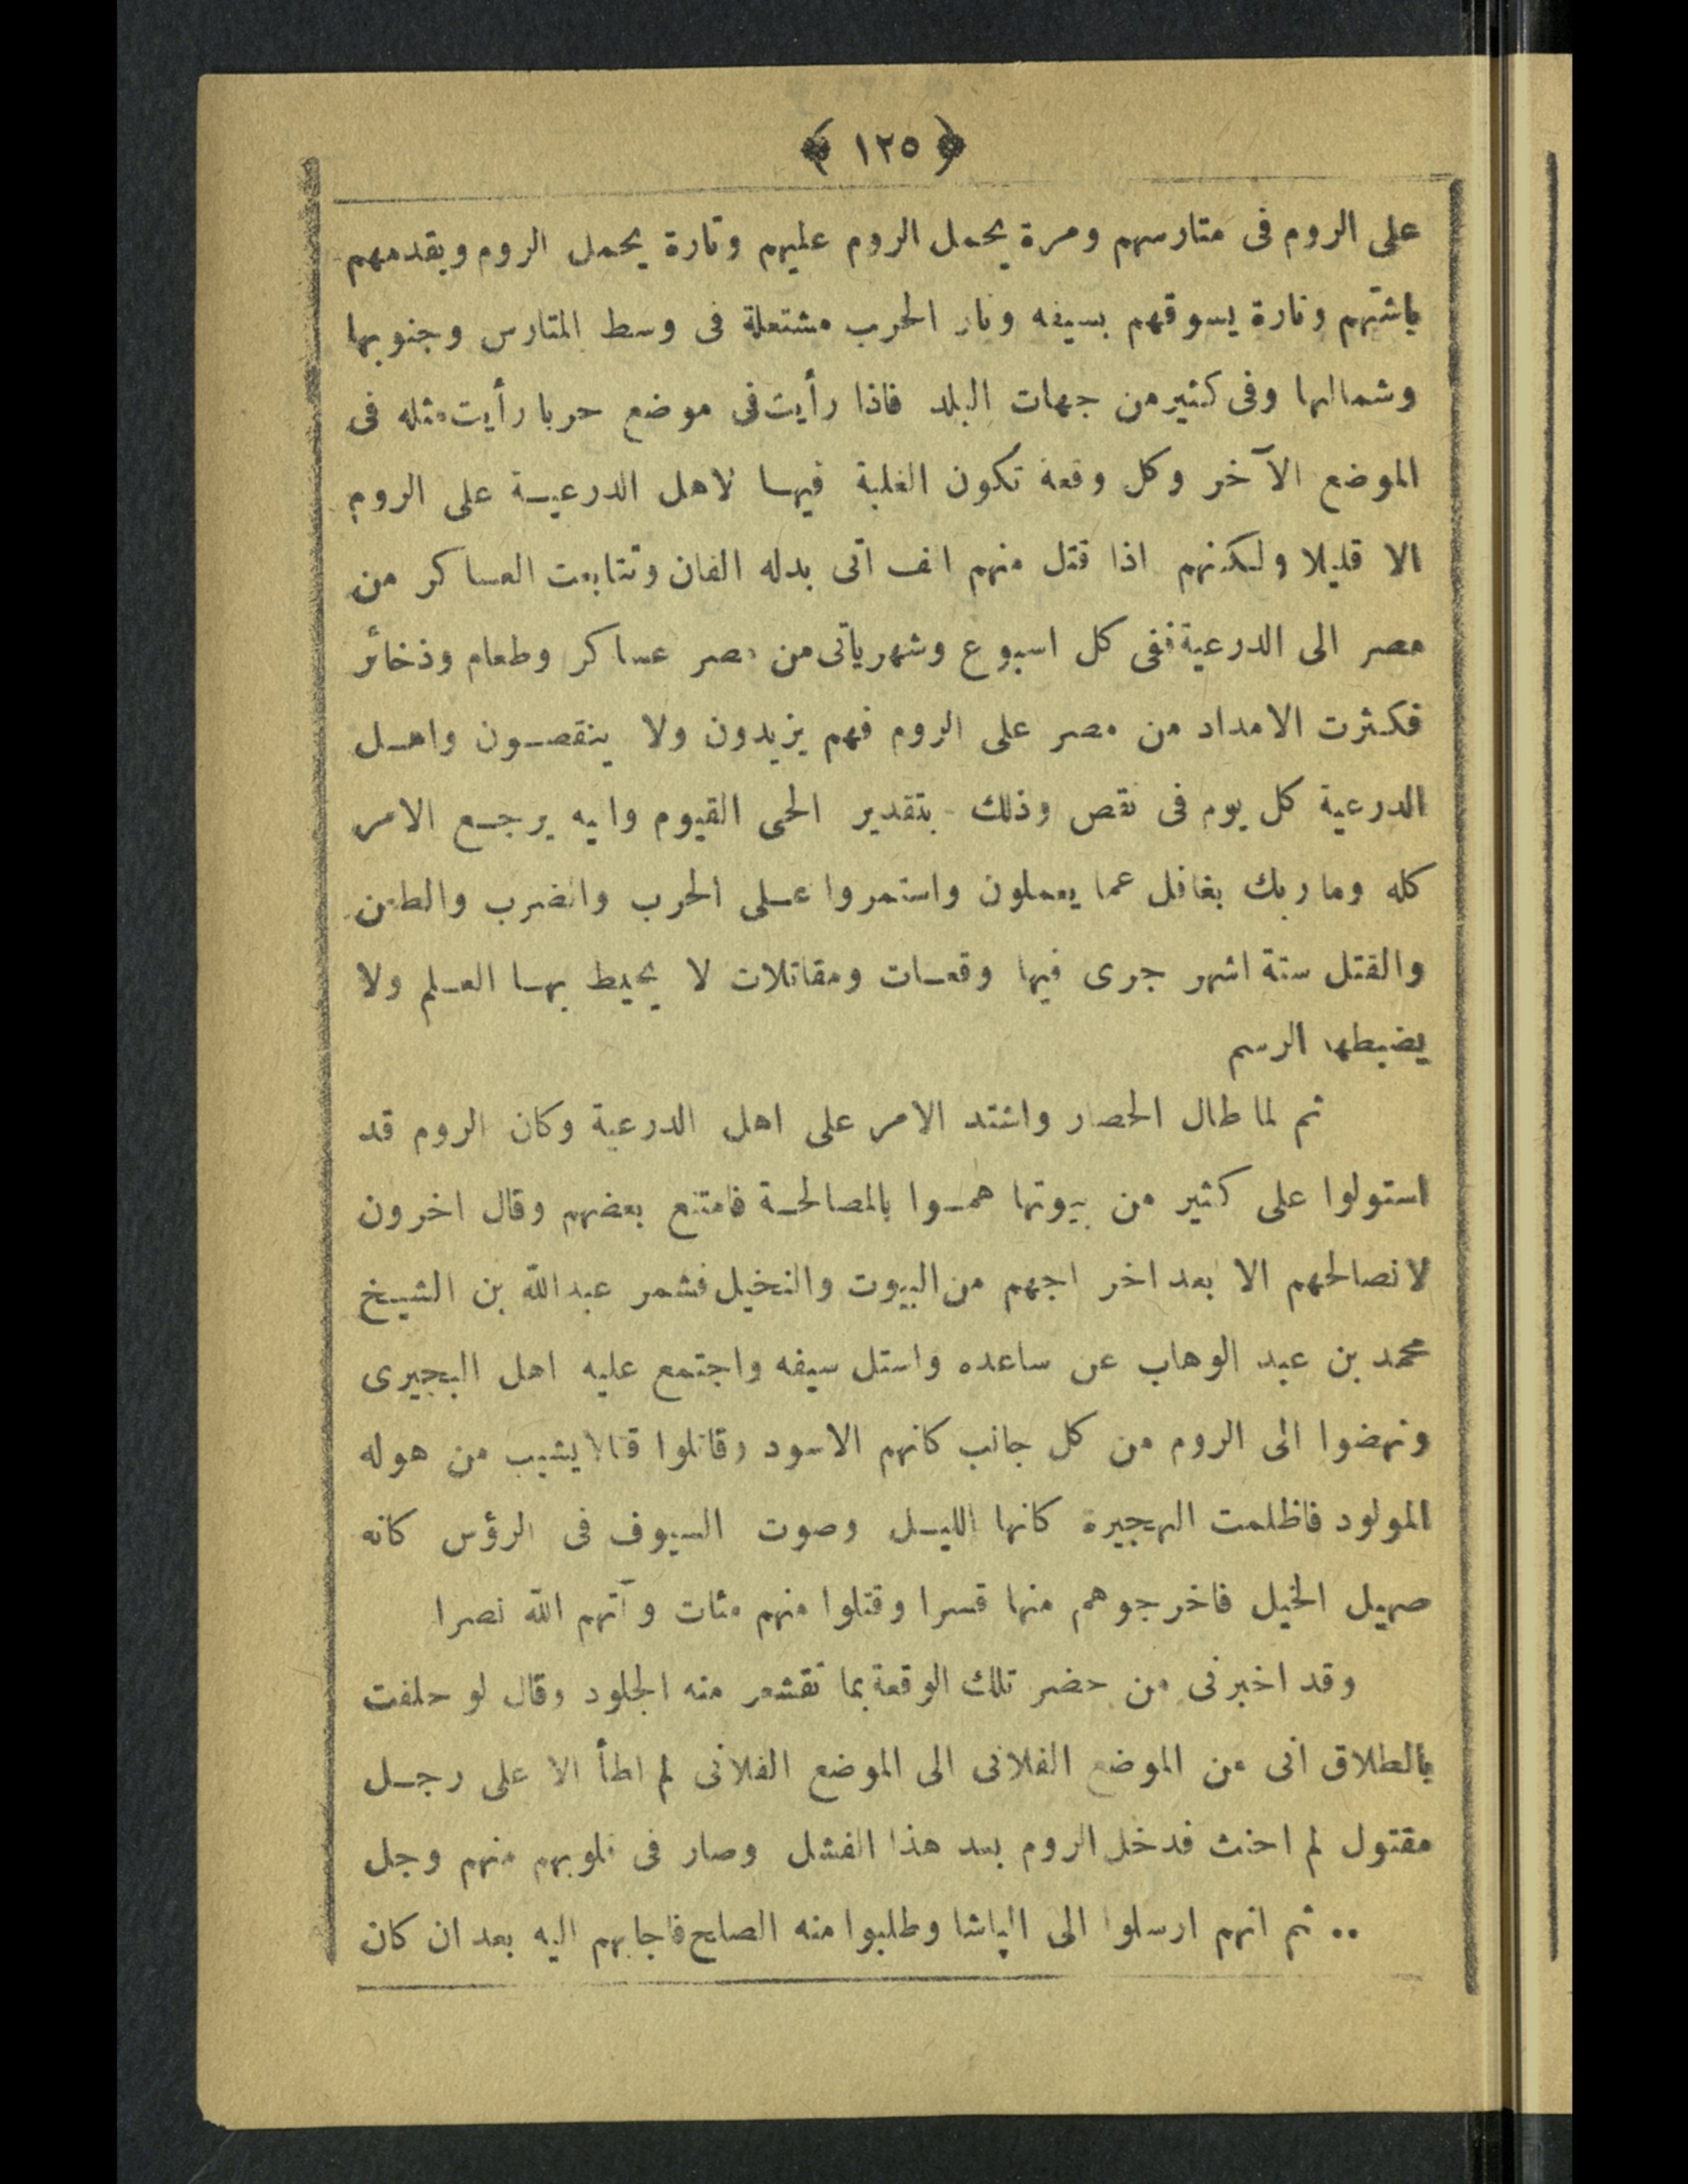 ﴿ ١٢٥ ﴾
على الروم فى متارسهم ومرة يحمل الروم عليهم وتارة يحمل الروم ويقدمهم
باشتهم وتارة يسوقهم بسيفه ونار الحرب مشتعلة فى وسط المتارس وجنوبها
وشمالها وفى كثير من جهات البلد فاذا رأيت فى موضع حربا رأيت مثله فى
الموضع الآخر وكل وقعة تكون الغلبة فيها لاهل الدرعية على الروم
الا قليلا ولكنهم اذا قتل منهم الف اتى بدله الفان وتتابعت العساكر من
مصر الى الدرعية ففى كل اسبوع وشهر يأتى من مصر عساكر وطعام وذخائر
فكثرت الامداد من مصر على الروم فهم يزيدون ولا ينقصون واهل
الدرعية كل يوم فى نقص وذلك بتقدير الحى القيوم واليه يرجع الامر
كله وما ربك بغافل عما يعملون واستمروا على الحرب والضرب والطعن
والقتل ستة اشهر جرى فيها وقعات ومقاتلات لا يحيط بها العلم ولا
يضبطها الرسم
ثم لما طال الحصار واشتد الامر على اهل الدرعية وكان الروم قد
استولوا على كثير من بيوتها هموا بالمصالحة فامتنع بعضهم وقال اخرون
لا نصالحهم الا بعد اخراجهم من البيوت والنخيل فشمر عبدالله بن الشيخ
محمد بن عبد الوهاب عن ساعده واستل سيفه واجتمع عليه اهل البجيرى
ونهضوا الى الروم من كل جانب كانهم الاسود وقاتلوا قتالا يشيب من هوله
المولود فاظلمت الهجيرة كانها الليل وصوت السيوف فى الرؤس كانه
صهيل الخيل فاخرجوهم منها قسرا وقتلوا منهم مئات وآتهم الله نصرا
وقد اخبرنى من حضر تلك الوقعة بما تقشعر منه الجلود وقال لو حلفت
بالطلاق انى من الموضع الفلانى الى الموضع الفلانى لم اطأ الا على رجل
مقتول لم احنث فدخل الروم بعد هذا الفشل وصار فى قلوبهم منهم وجل
.. ثم انهم ارسلوا الى الباشا وطلبوا منه الصلح فاجابهم اليه بعد ان كان